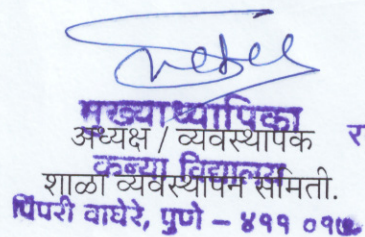 मुख्याध्यापिका
अध्यक्ष / व्यवस्थापक
कन्या विद्यालय
शाळा व्यवस्थापन समिती.
पिंपरी वाघेरे, पुणे – ४११ ०१७